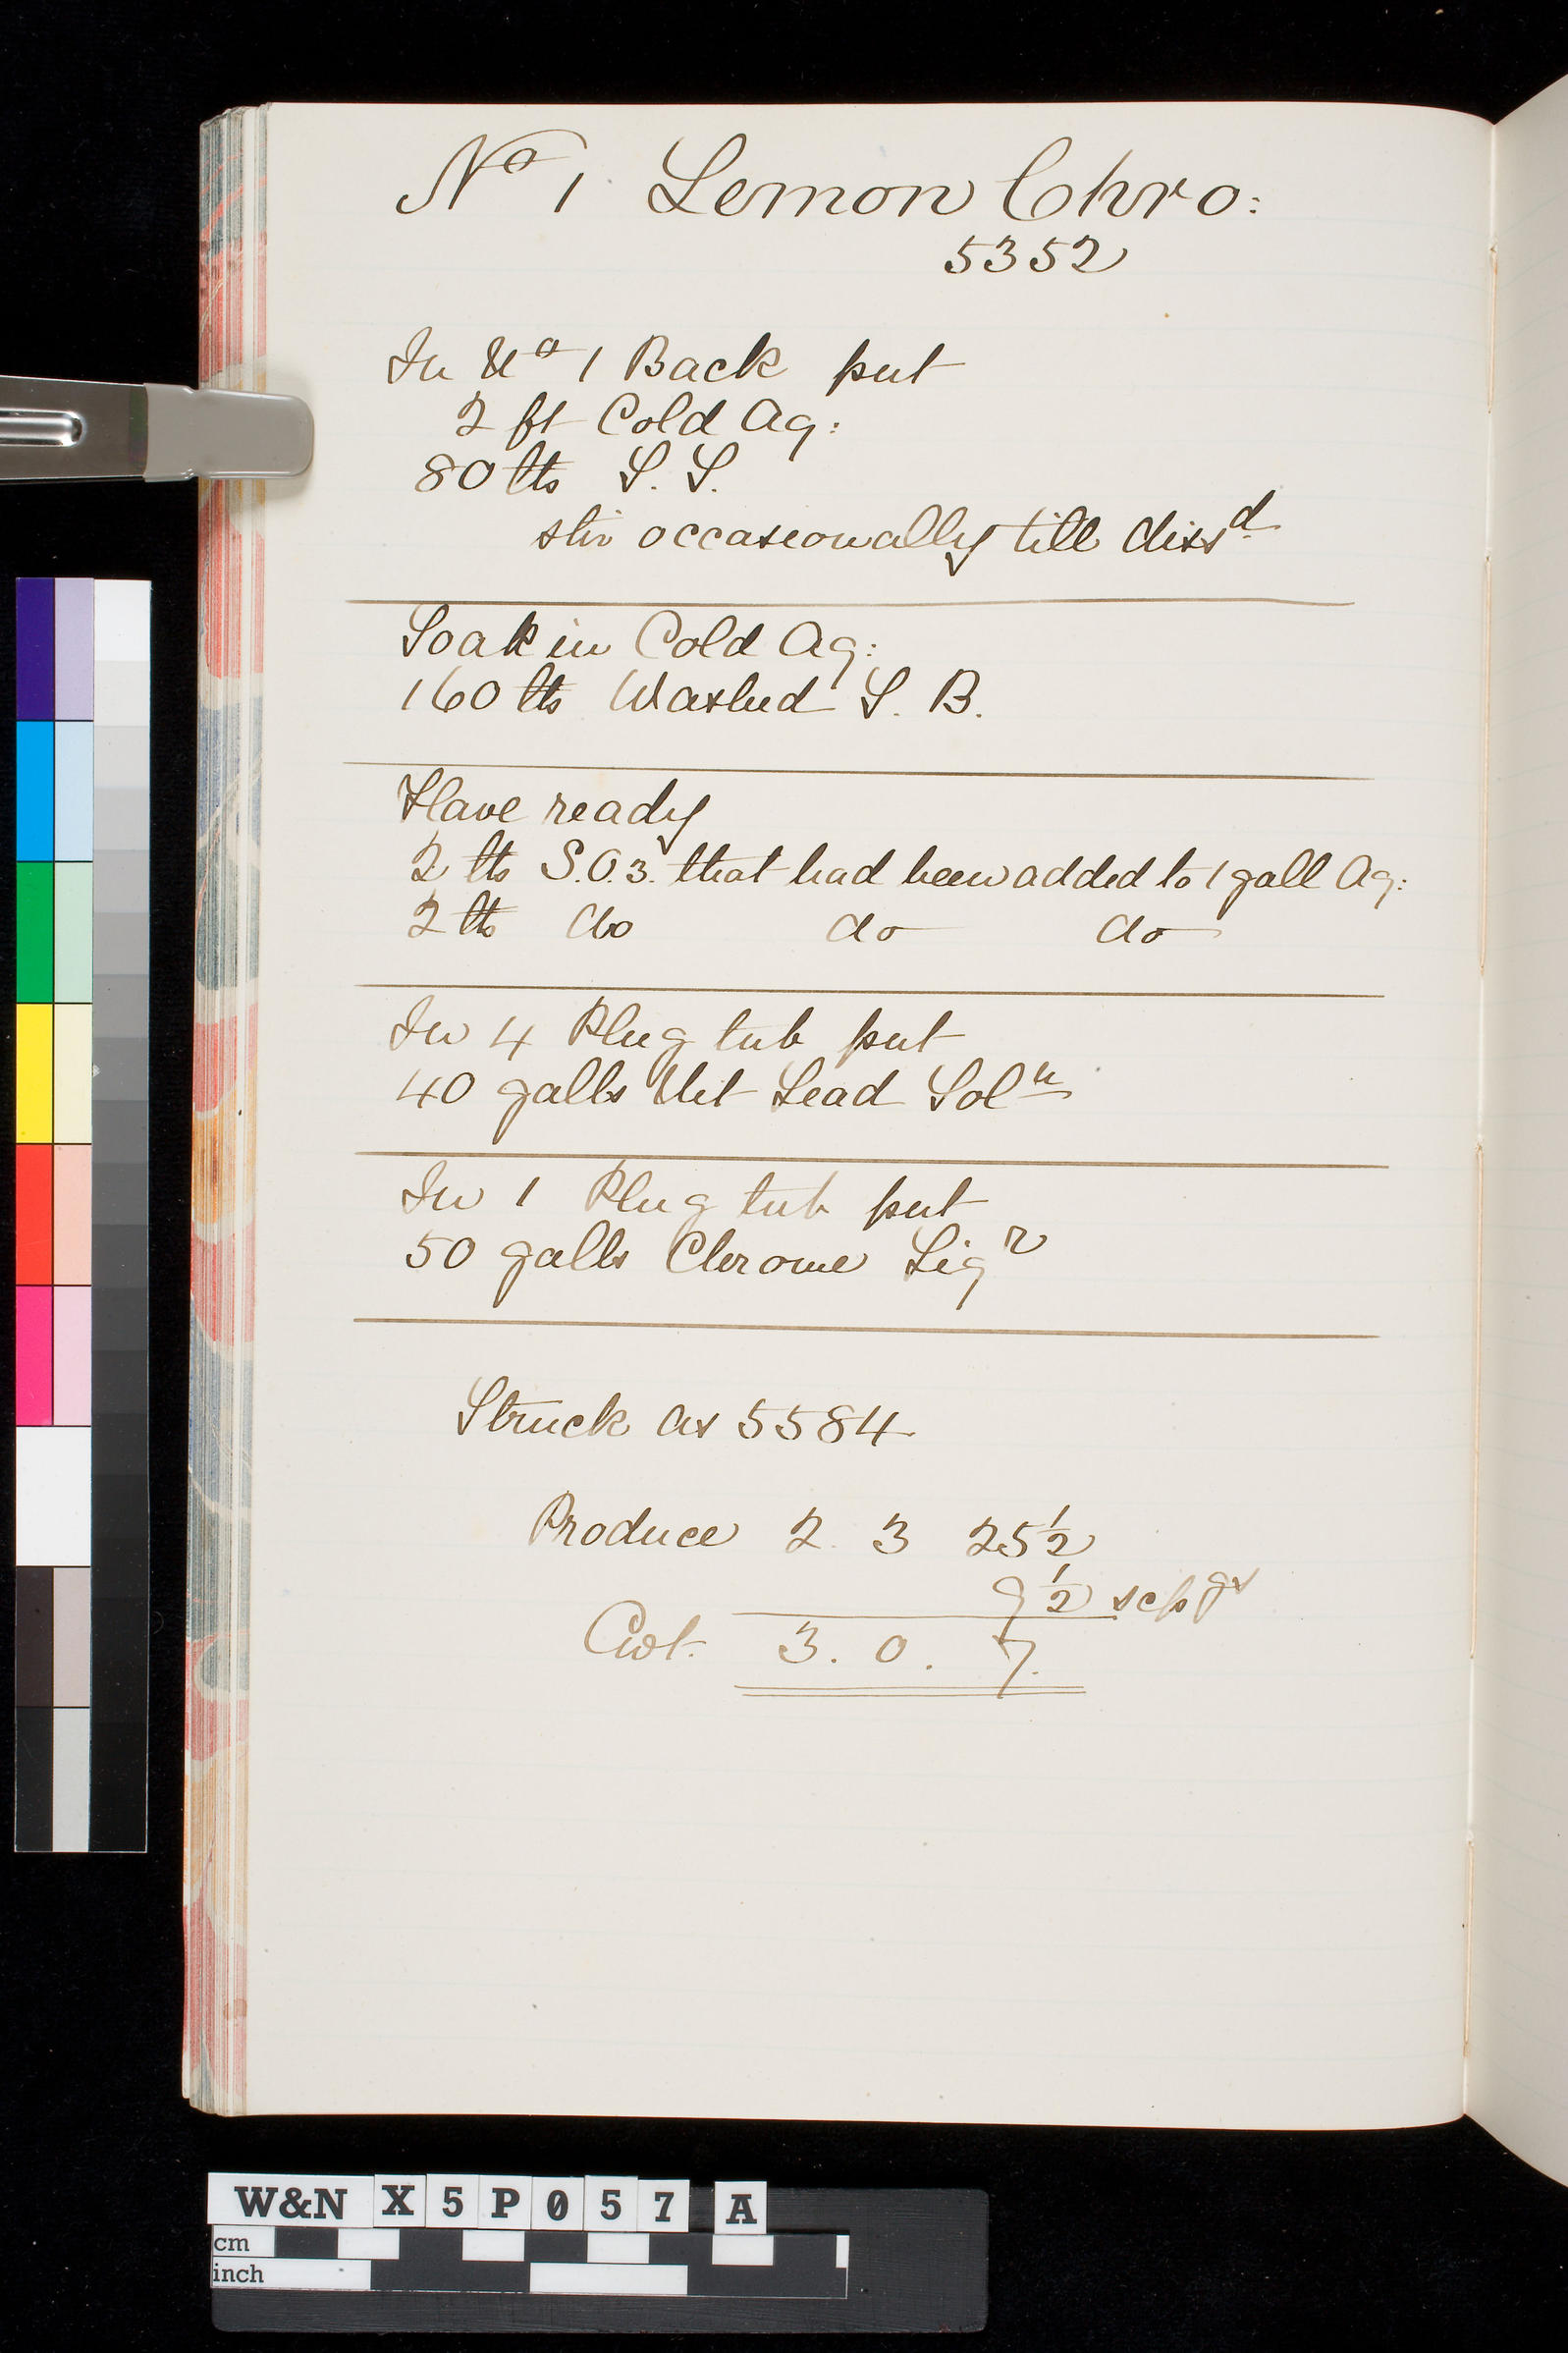 Nº 1. Lemon Chro:
5352
In Nº 1 Back put
2 ft Cold Aq:
80 lbs S. S.
stir occasionally till dissd
Soak in Cold Aq:
160 lbs Washed S. B.
Have ready
2 lbs S.O.3. that had been added to 1 gall Aq:
2 lbs do do do
In 4 Plug tub put
40 galls Nit Lead Soln
In 1 Plug tub put
50 galls Chrome Liqr
Struck as 5584
Produce 2. 3 25½
9½ scpgs
Cwt. 3. 0. 7.
W&N X5P057 A
cm
inch